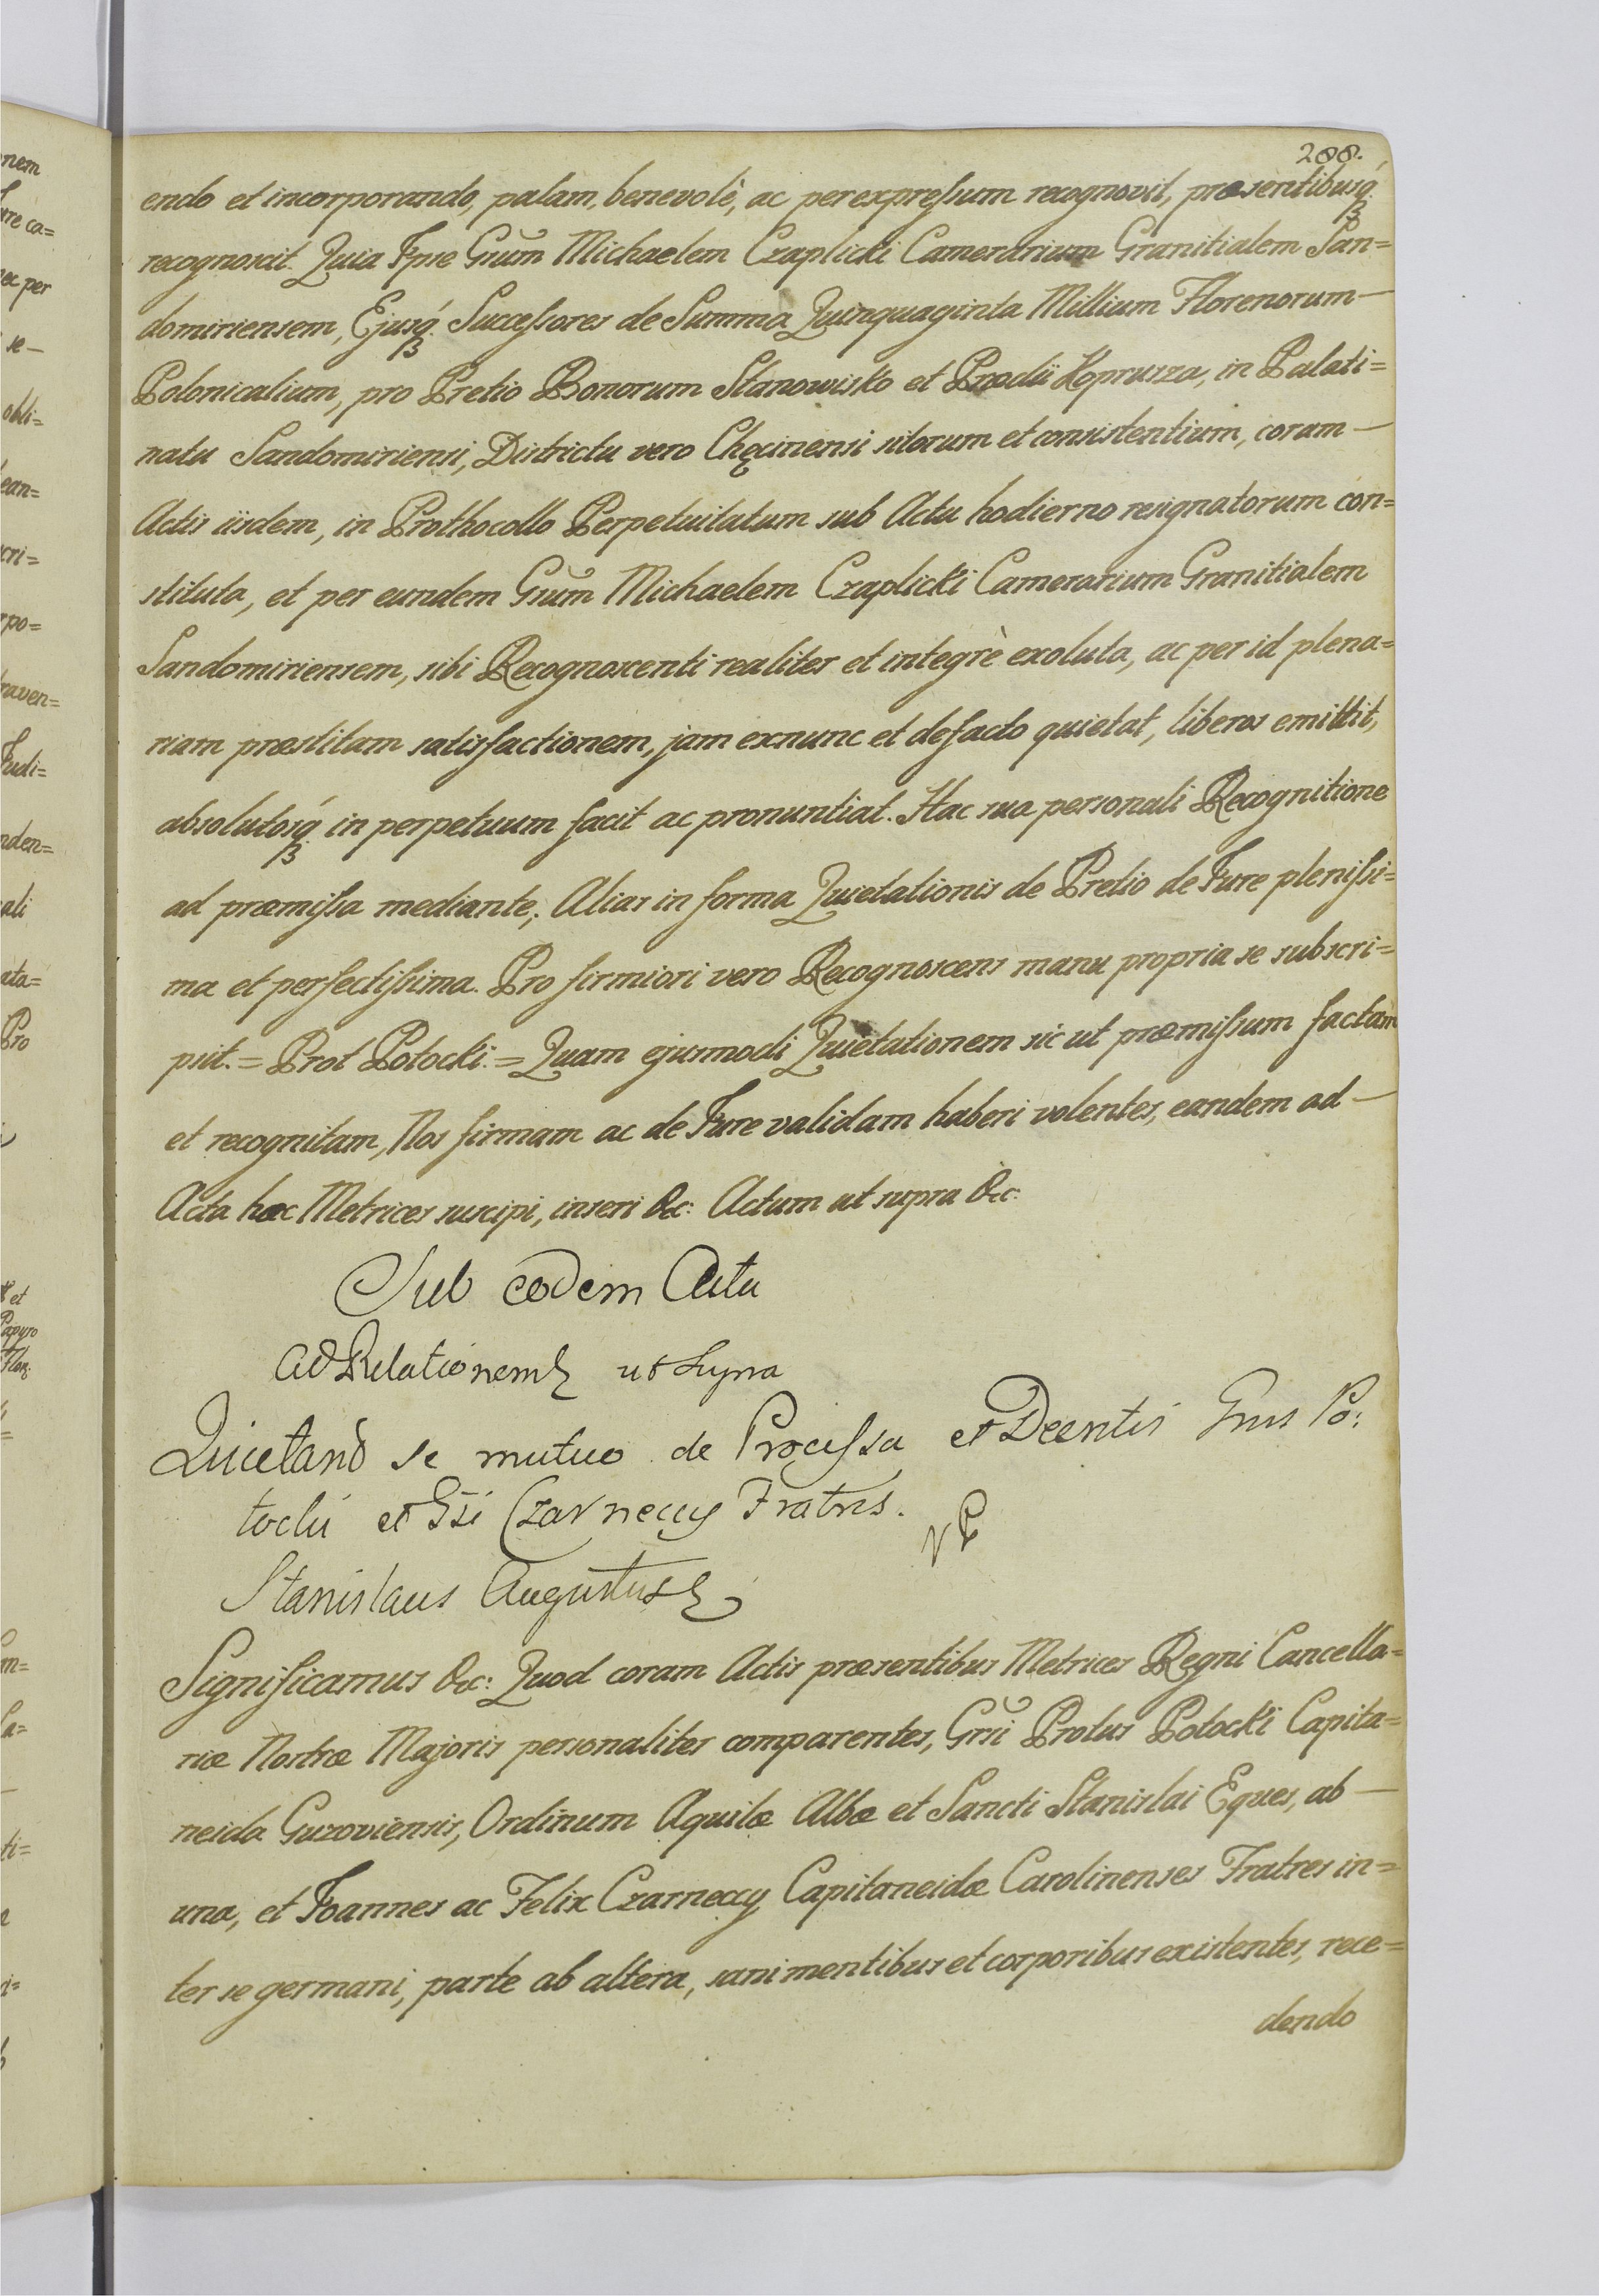 288.
endo et incorporando, palam, benevolè, ac perexpreſsum recognovit, præsentibusq́ꝫ
recognoscit. Quia Ipse Grũm Michaelem Czaplicki Camerarium Granitialem San=
domiriensem, Ejusq́ꝫ Succeſsores de Summa Quinquaginta Millium Florenorum —
Polonicalium, pro Pretio Bonorum Stanowisko et Prædii Koprusza, in Palati=
natu Sandomiriensi, Districtu vero Chęcinensi sitorum et consistentium, coram —
Actis iisdem, in Prothocollo Perpetuitatum sub Actu hodierno resignatorum con=
stituta, et per eundem Grũm Michaelem Czaplicki Camerarium Granitialem
Sandomiriensem, sibi Recognoscenti realiter et integrè exoluta, ac per id plena=
riam præstitam satisfactionem, jam exnunc et defacto quietat, liberos emittit,
absolutosq́ꝫ in perpetuum facit ac pronuntiat. Hac sua personali Recognitione
ad præmiſsa mediante; Alias in forma Quietationis de Pretio de Jure pleniſsi=
ma et perfectiſsima. Pro firmiori vero Recognoscens manu propria se subscri=
psit. = Prot Potocki. = Quam ejusmodi Quietationem sic ut præmiſsum factam
et recognitam, Nos firmam ac de Jure validam haberi volentes, eandem ad —
Acta hæc Metrices suscipi, inseri &c: Actum ut supra &c:
Sub eodem Actu
Ad Relationem ut supra
Quietand se mutuo de Proceſsu et Deentis Grus Po:
tocki et Gsi Czarneccy Fratres.
Stanislaus Augustus
Significamus &c: Quod coram Actis præsentibus Metrices Regni Cancella=
riæ Nostræ Majoris personaliter comparentes, Grsi Protus Potocki Capita=
neida Guzoviensis, Ordinum Aquilæ Albæ et Sancti Stanislai Eques, ab —
una, et Joannes ac Felix Czarneccy Capitaneidæ Carolinenses Fratres in=
ter se germani, parte ab altera, sani mentibus et corporibus existentes, rece=
dendo